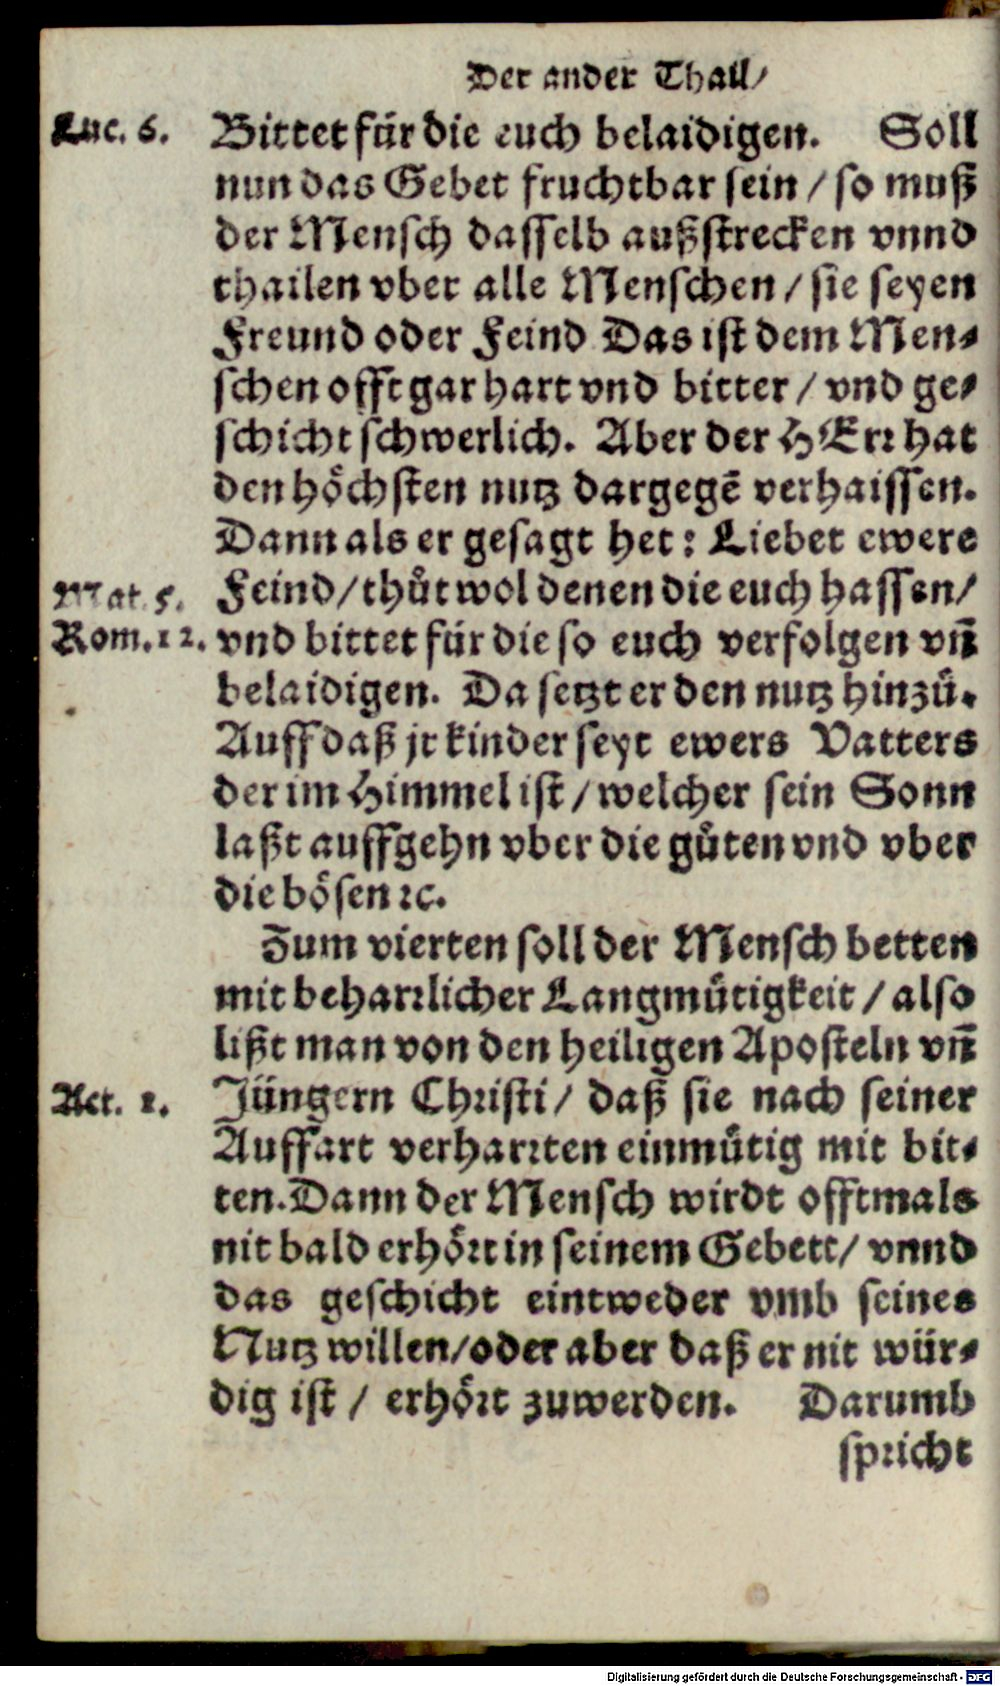 Der ander Thail/
Luc. 6. Bittet für die euch belaidigen. Soll
nun das Gebet fruchtbar sein / so muß
der Mensch dasselb außstrecken vnnd
thailen vber alle Menschen / sie seyen
Freund oder Feind Das ist dem Men⸗
schen offt gar hart vnd bitter / vnd ge⸗
schicht schwerlich. Aber der HErr hat
den höchsten nutz dargegē verhaissen.
Dann als er gesagt het: Liebet ewere
Mat. 5. Feind / thůt wol denen die euch hassen /
Rom. 12. vnd bittet für die so euch verfolgen vñ
belaidigen. Da setzt er den nutz hinzů.
Auff daß jr kinder seyt ewers Vatters
der im Himmel ist / welcher sein Sonn
laßt auffgehn vber die gůten vnd vber
die bösen ꝛc.
Zum vierten soll der Mensch betten
mit beharrlicher Langmůtigkeit / also
lißt man von den heiligen Aposteln vñ
Act. 1. Jüngern Christi / daß sie nach seiner
Auffart verharrten einmůtig mit bit⸗
ten. Dann der Mensch wirdt offtmals
nit bald erhört in seinem Gebett / vnnd
das geschicht eintweder vmb seines
Nutz willen / oder aber daß er nit wür⸗
dig ist / erhört zuwerden. Darumb
spricht
Digitalisierung gefördert durch die Deutsche Forschungsgemeinschaft - DFG